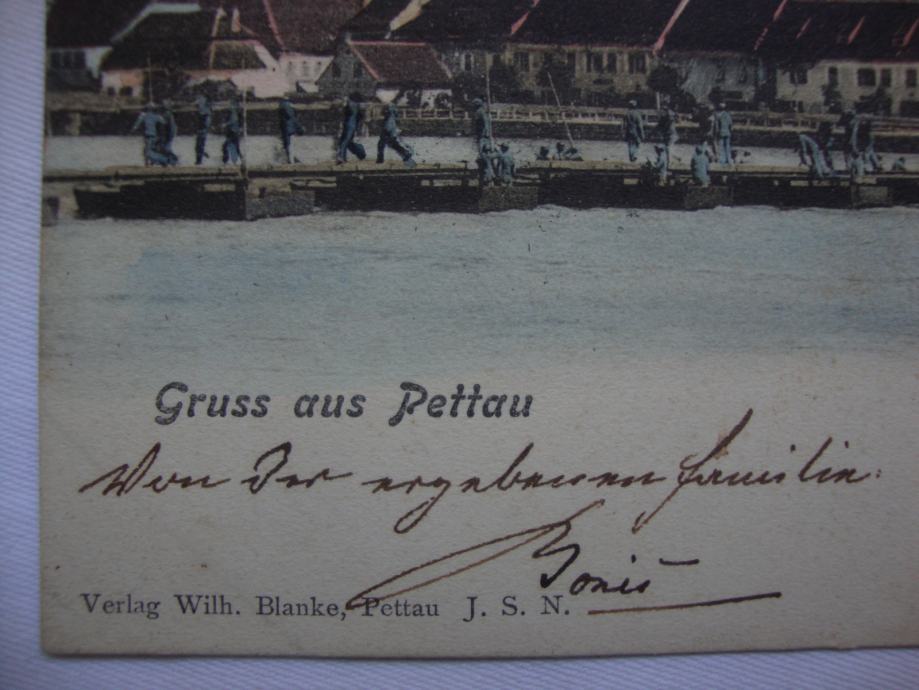 Gruss aus Pettau
Von der ergebenen Familie
Verlag Wilh. Blanke, Pettau J. S. N.